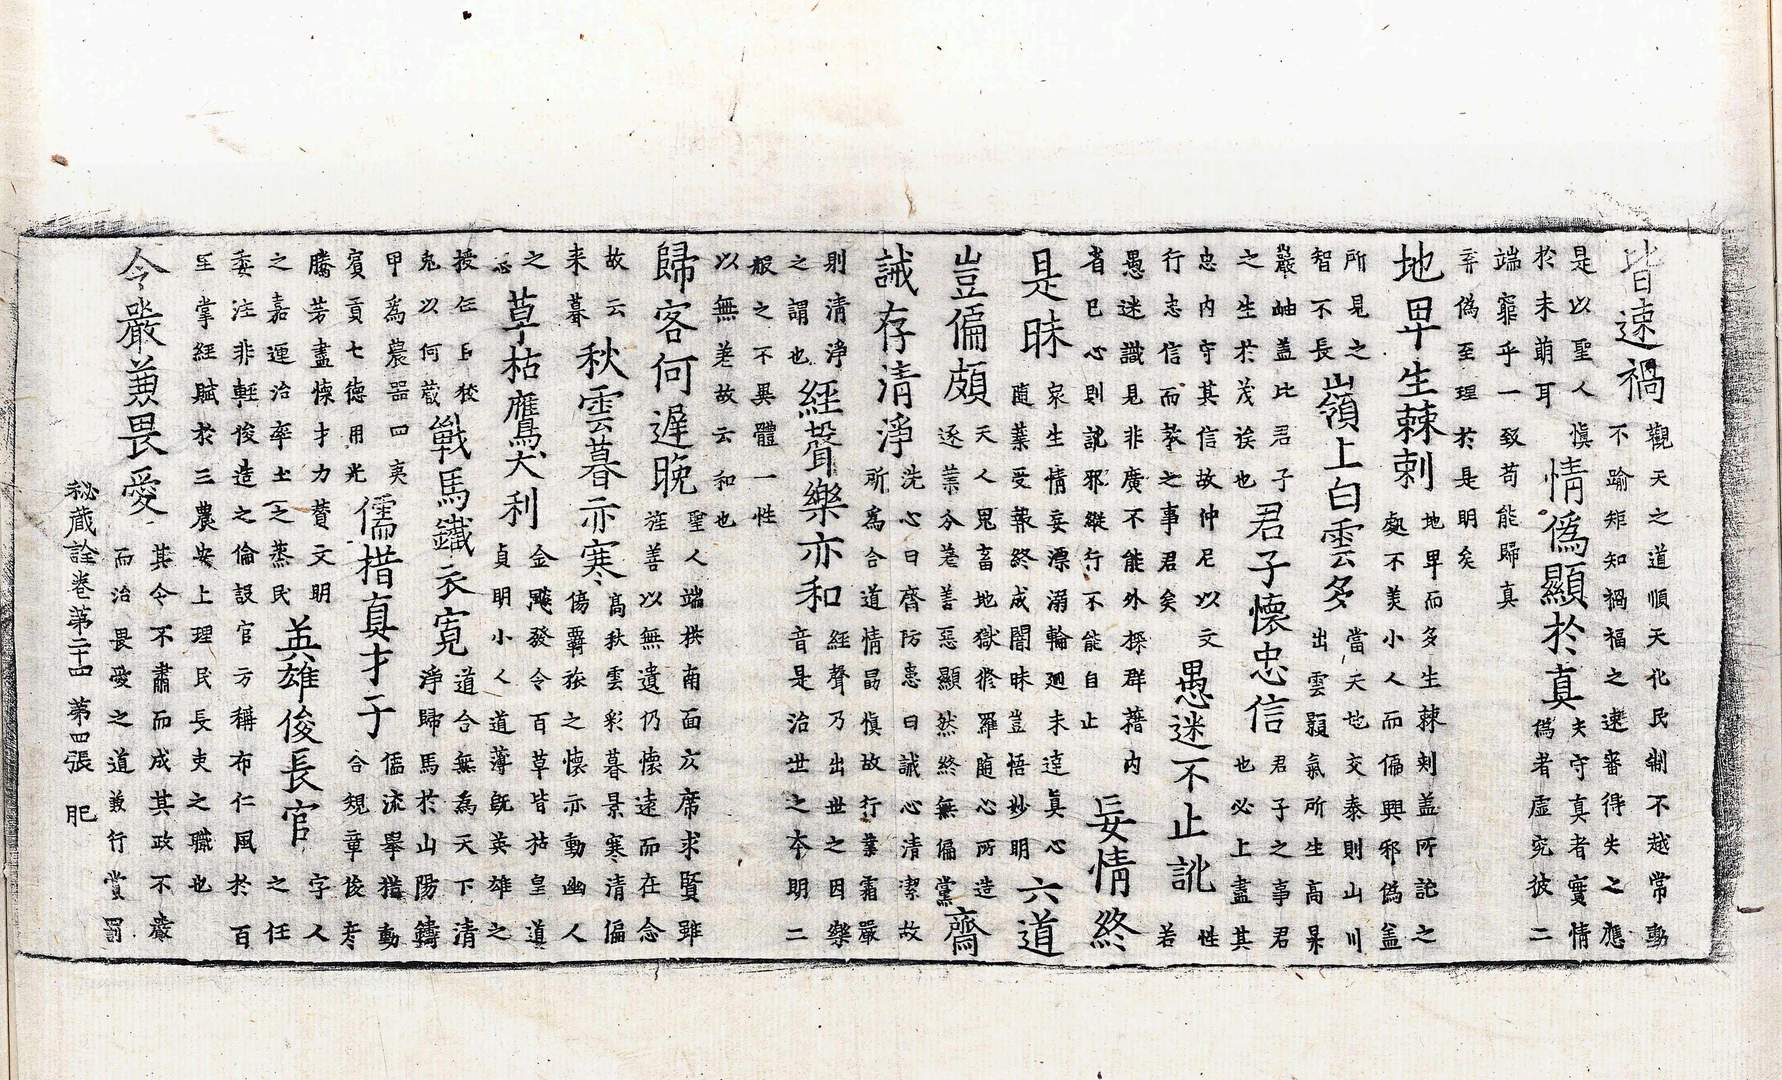 皆速禍
觀天之道順天化民制不越常動
不踰矩知禍福之速審得失之應
是以聖人慎
於未萌耳
情偽顯於真
夫守真者實情
偽者虛究彼二
端窮乎一致苟能歸真
弃偽至理於是明矣
地卑生棘刺
地卑而多生棘刺盖所訛之
處不美小人而偏興邪偽盖
所見之
智不長
嶺上白雲多
當天地交泰則山川
出雲顥氣所生高杲
巖岫盖比君子
之生於茂族也
君子懷忠信
君子之事君
也必上盡其
忠内守其信故仲尼以文
行忠信而教之事君矣
愚迷不止訛
性
若
愚迷識見非廣不能外探群藉内
省已心則訛邪縱行不能自止
妄情終
是昧
衆生情妄漂溺輪廻未達真心
隨業受報終成闇昧豈悟妙明
六道
豈偏頗
天人鬼畜地獄脩羅随心所造
逐業分差善惡顯然終無偏黨
齋
誡存清淨
洗心曰齋防患曰誡心清潔故
所為合道情勗慎故行業霜嚴
則清淨
之謂也
經聲樂亦和
經聲乃出世之因樂
音是治世之本明二
般之不異體一性
以無差故云和也
歸客何遲晚
聖人端拱南面席求賢雖
旌善以無遺仍懷遠而在念
故云
来暮
秋雲暮亦寒
高秋雲彩暮景寒清偏
傷羈旅之懷亦動幽人
之
志
草枯鷹犬利
金飈發令百草皆枯皇道
貞明小人道薄既英雄之
授任㠯狡
兔以何蔵
戰馬鐵衣寛
道合無為天下清
淨歸馬於山陽鑄
甲為農器四夷
賓貢七德用光
儒措真才子
儒流舉措動
合規章俊彥
騰芳盡懷才力贊文明
之嘉運治率土之蒸民
英雄俊長官
字人
之任
委注非輕俊造之倫設官方稱布仁風於百
里掌經賦於三農安上理民長吏之職也
令嚴兼畏愛
其令不肅而成其政不嚴
而治畏愛之道兼行賞罰
秘蔵詮卷第二十四 第四張 肥